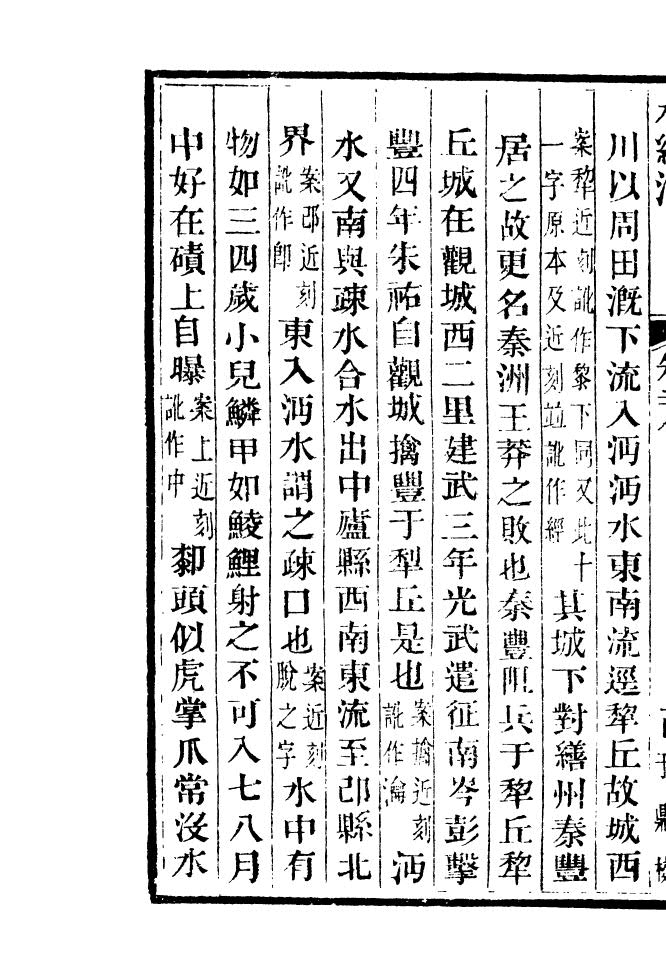 川以周田漑下流入沔沔水東南流逕犂丘故城西
案犂近刻訛作黎下同又此十
一字原本及近刻竝訛作經
其城下對繕州秦豐
居之故更名秦洲王莽之敗也秦豐阻兵于犂丘犂
丘城在觀城西二里建武三年光武遣征南岑彭擊
豐四年朱祐自觀城擒豐于犂丘是也
案擒近刻
訛作淪
沔
水又南與疎水合水出中廬縣西南東流至邔縣北
界
案邔近刻
訛作卽
東入沔水謂之疎口也
案近刻
脫之字
水中有
物如三四歲小兒鱗甲如鯪鯉射之不可入七八月
中好在磧上自曝
案上近刻
訛作中
厀頭似虎掌爪常沒水